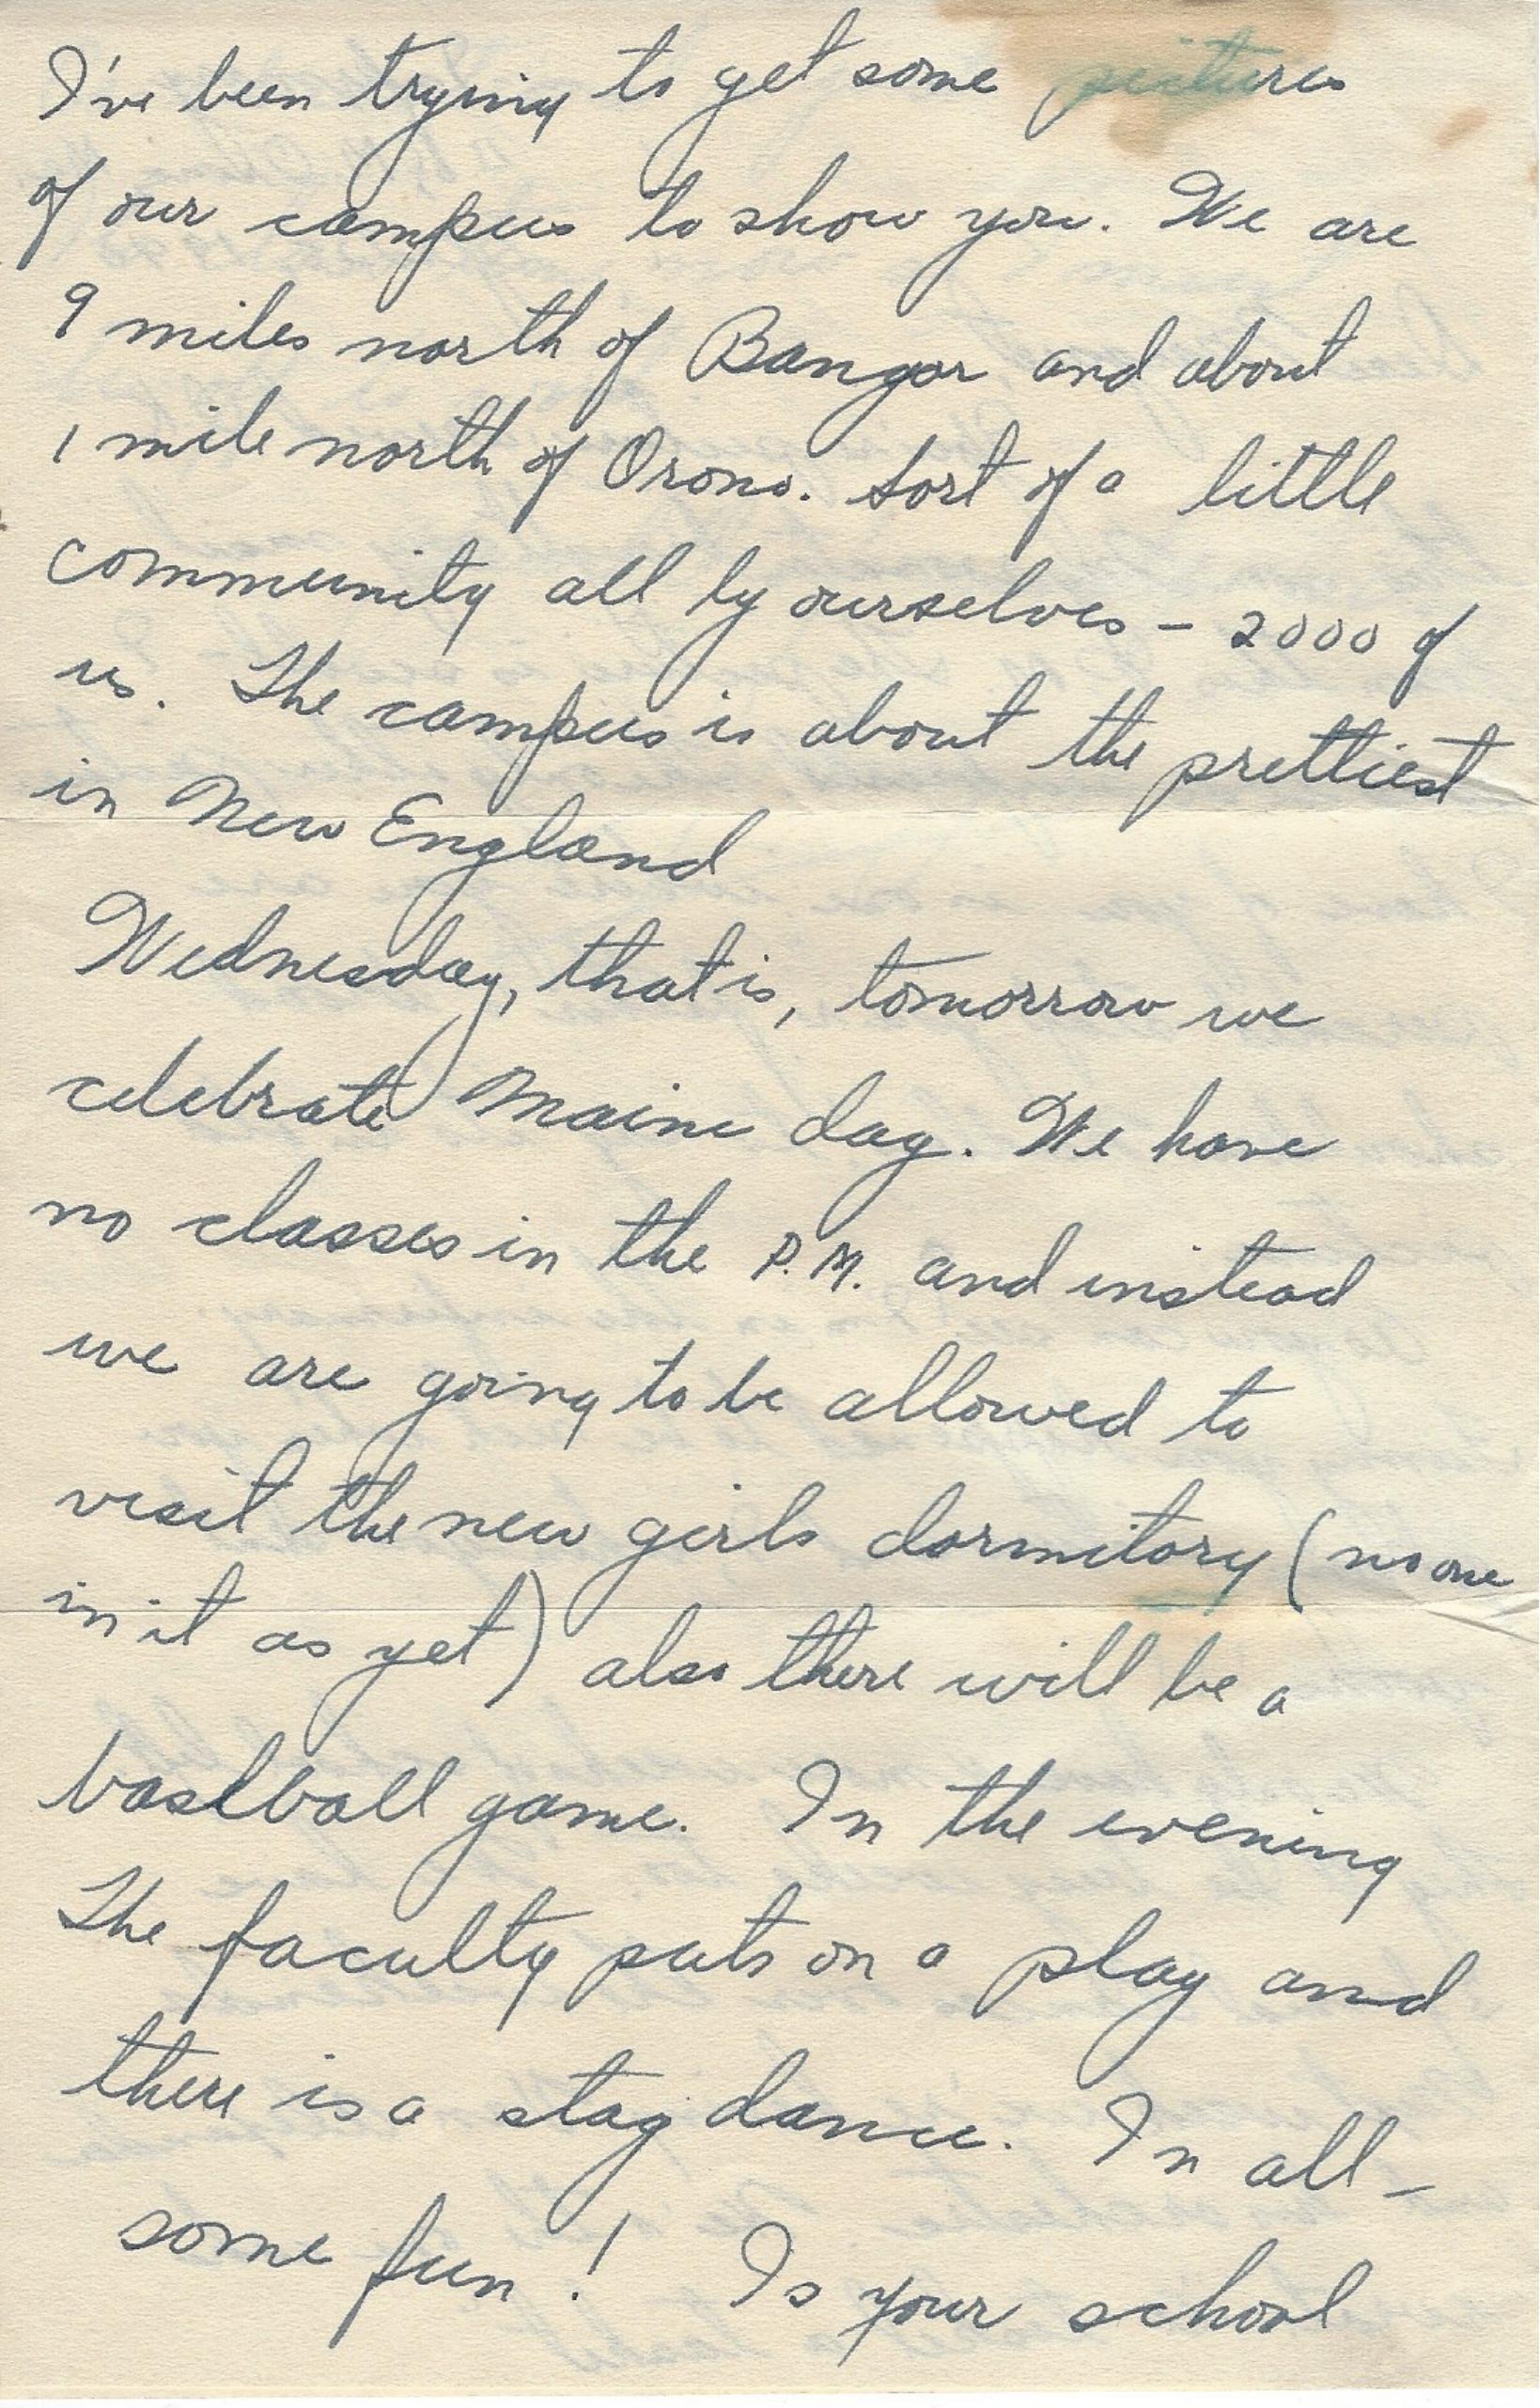 I've been trying to get some pictures
of our campus to show you. We are
9 miles north of Bangor and about
1 mile north of Orono. Sort of a little
community all by ourselves – 2000 of
us. The campus is about the prettiest
in New England
Wednesday, that is, tomorrow we
celebrate Maine day. We have
no classes in the P.M. and instead
we are going to be allowed to
visit the new girls dormitory (no one
in it as yet) also there will be a
baseball game. In the evening
The faculty puts on a play and
there is a stag dance. In all –
some fun! Is your school